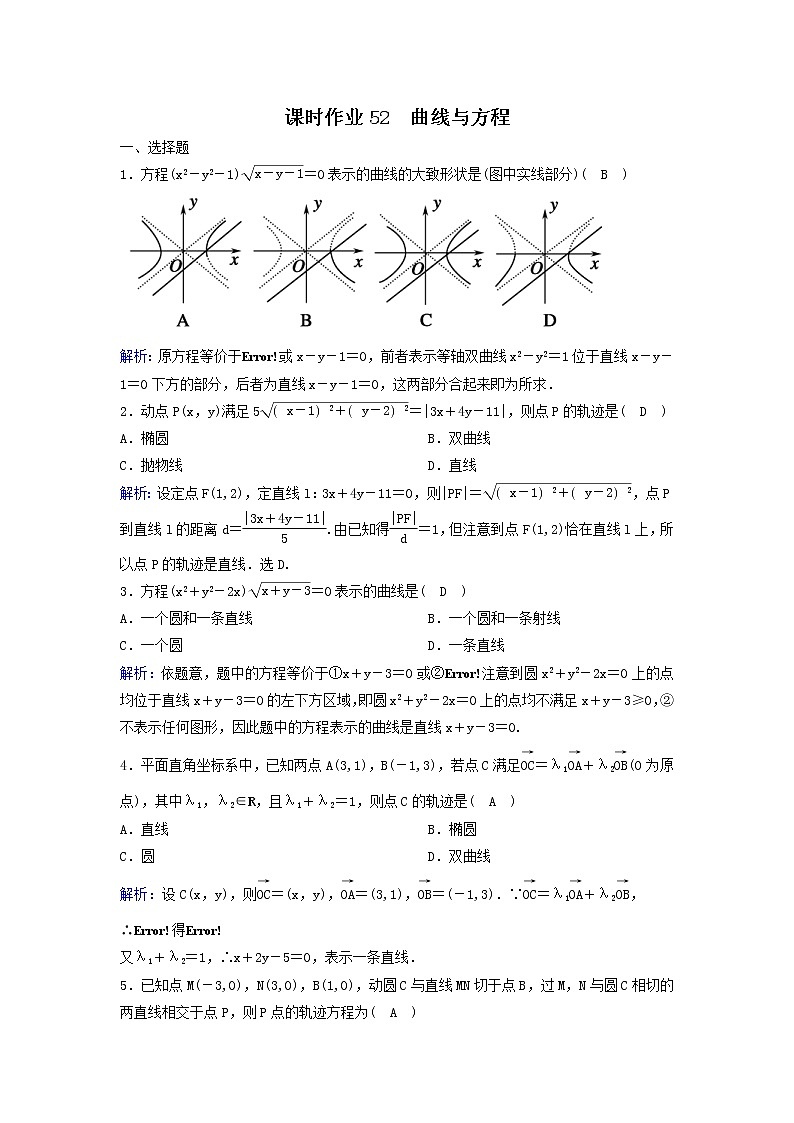 课时作业52　曲线与方程
一、选择题
1．方程(x²－y²－1)√(x－y－1)＝0表示的曲线的大致形状是(图中实线部分)(　B　)
y y y y
O x O x O x O x
A B C D
解析：原方程等价于Error!或x－y－1＝0，前者表示等轴双曲线x²－y²＝1位于直线x－y－
1＝0下方的部分，后者为直线x－y－1＝0，这两部分合起来即为所求．
2．动点P(x，y)满足5√((x－1)²＋(y－2)²)＝|3x＋4y－11|，则点P的轨迹是(　D　)
A．椭圆 B．双曲线
C．抛物线 D．直线
解析：设定点F(1,2)，定直线l：3x＋4y－11＝0，则|PF|＝√((x－1)²＋(y－2)²)，点P
到直线l的距离d＝|3x＋4y－11|/5.由已知得|PF|/d＝1，但注意到点F(1,2)恰在直线l上，所
以点P的轨迹是直线．选D.
3．方程(x²＋y²－2x)√(x＋y－3)＝0表示的曲线是(　D　)
A．一个圆和一条直线 B．一个圆和一条射线
C．一个圆 D．一条直线
解析：依题意，题中的方程等价于①x＋y－3＝0或②Error!注意到圆x²＋y²－2x＝0上的点
均位于直线x＋y－3＝0的左下方区域，即圆x²＋y²－2x＝0上的点均不满足x＋y－3≥0，②
不表示任何图形，因此题中的方程表示的曲线是直线x＋y－3＝0.
4．平面直角坐标系中，已知两点A(3,1)，B(－1,3)，若点C满足OC→＝λ₁OA→＋λ₂OB→(O为原
点)，其中λ₁，λ₂∈R，且λ₁＋λ₂＝1，则点C的轨迹是(　A　)
A．直线 B．椭圆
C．圆 D．双曲线
解析：设C(x，y)，则OC→＝(x，y)，OA→＝(3,1)，OB→＝(－1,3)．∵OC→＝λ₁OA→＋λ₂OB→，
∴Error!得Error!
又λ₁＋λ₂＝1，∴x＋2y－5＝0，表示一条直线．
5．已知点M(－3,0)，N(3,0)，B(1,0)，动圆C与直线MN切于点B，过M，N与圆C相切的
两直线相交于点P，则P点的轨迹方程为(　A　)